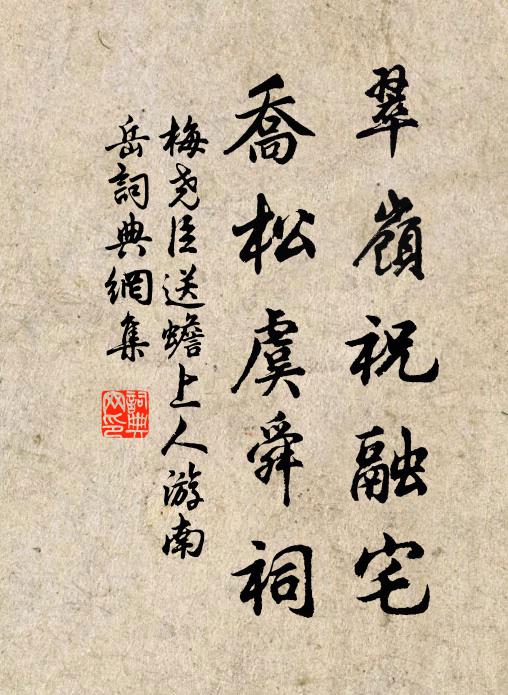 翠嶺祝融宅
喬松虞舜祠
梅尧臣送蟾上人游南
岳詞典網集
詞典
网印